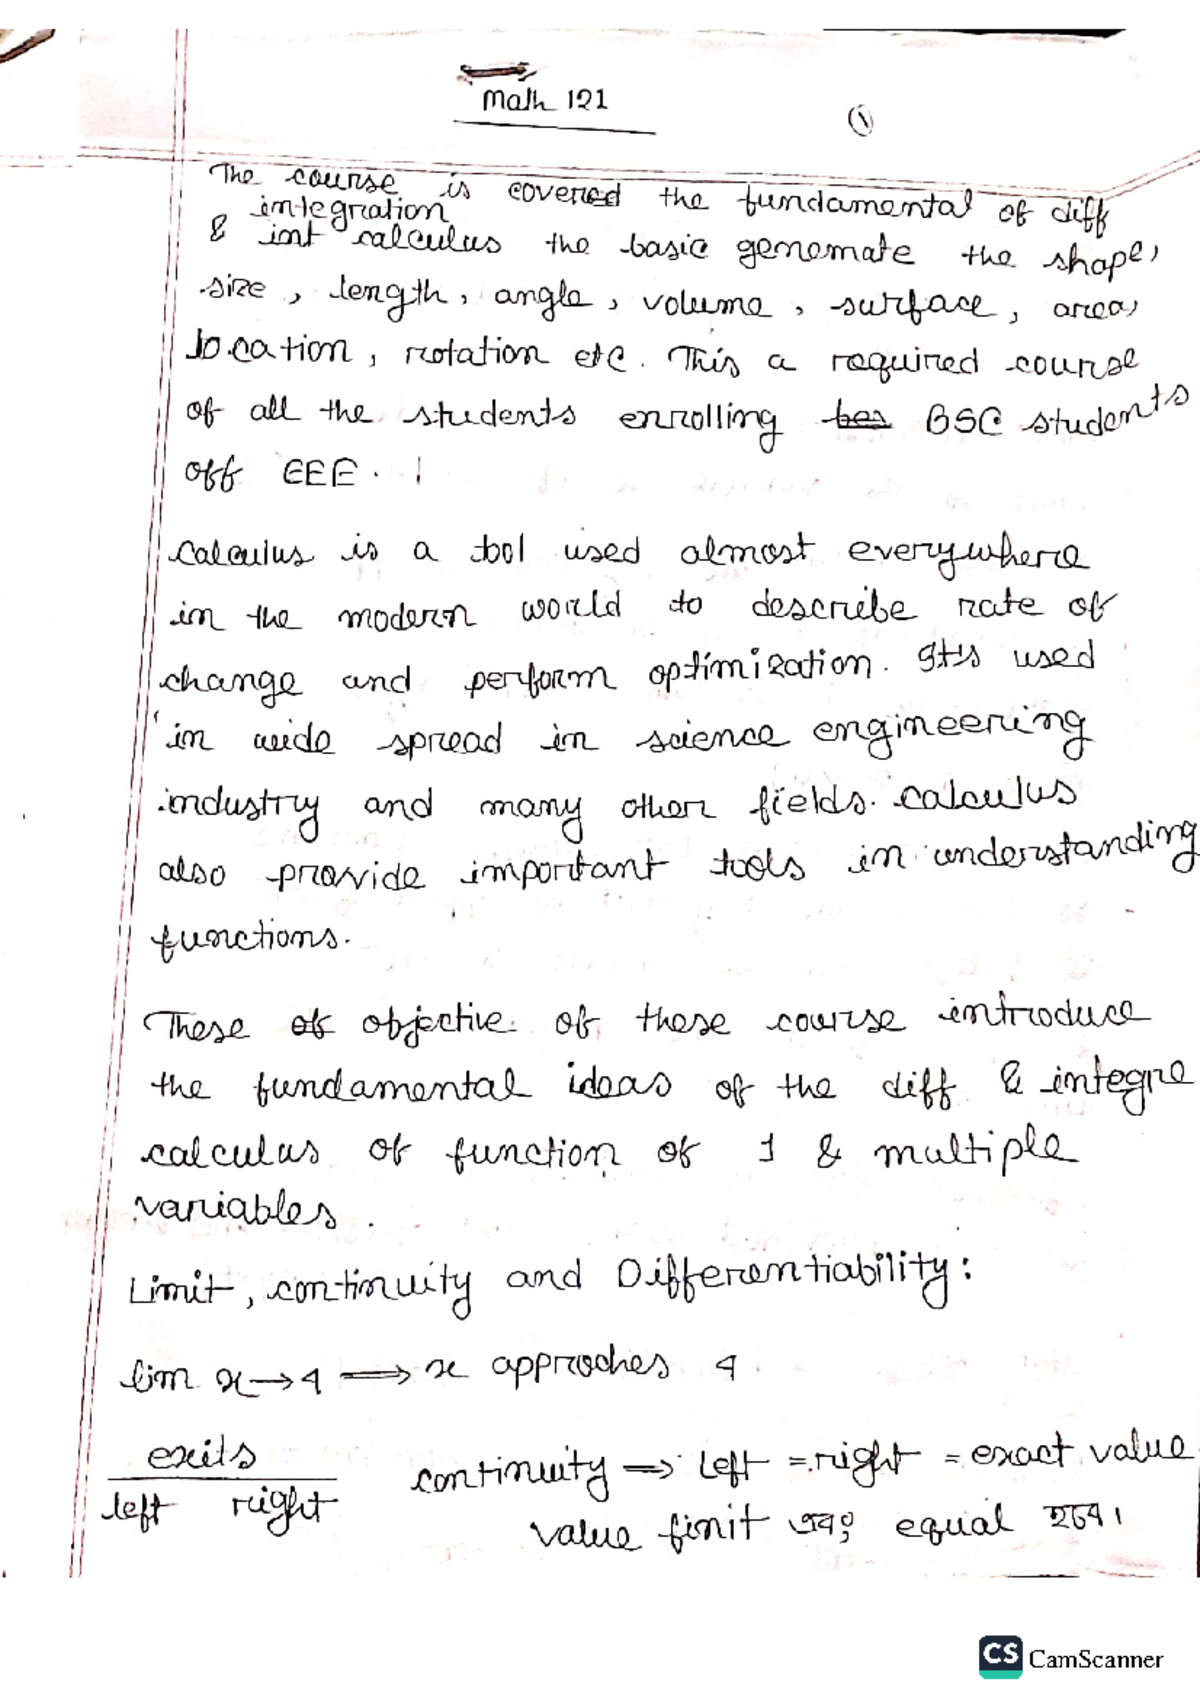 Math 121
1
The course is covered the fundamental of diff
integration
& int calculus the basic genemate the shape,
size, length, angle, volume, surface, area,
location, rotation etc. This a required course
of all the students enrolling bes BSC students
off EEE.
calculus is a tool used almost everywhere
in the modern world to describe rate of
change and perform optimization. It is used
in wide spread in science engineering
industry and many other fields. calculus
also provide important tools in understanding
functions.
These of objective of these course introduce
the fundamental ideas of the diff & integre
calculus of function of 1 & multiple
variables.
Limit, continuity and Differentiability:
lim x→4 ⟹ x approches 4
exits
left right
continuity ⟹ left = right = exact value
value finit এবং equal হলে।
CS CamScanner